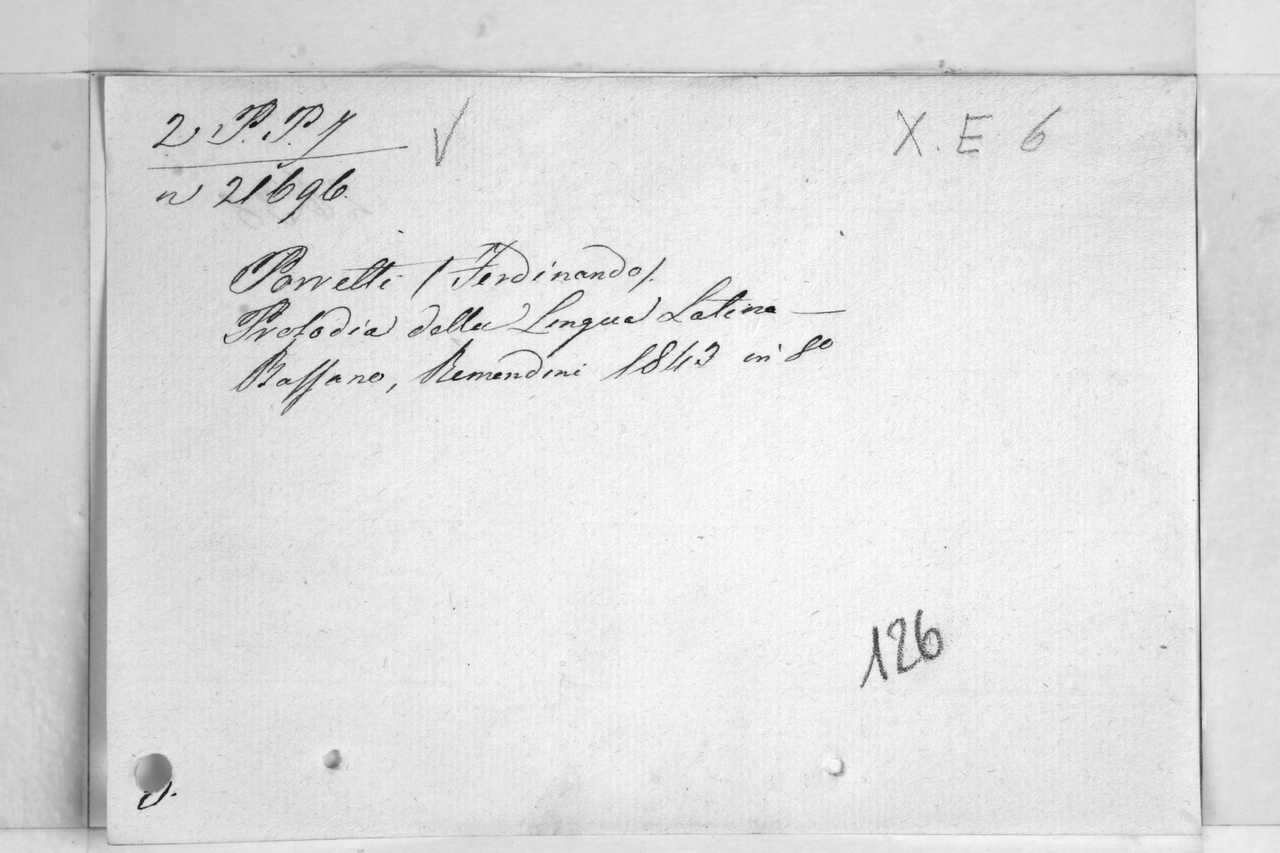 2 P.P.7
√
X. E 6
n 21696.
Porretti (Ferdinando).
Prosodia della Lingua Latina —
Bassano, Remondini 1843 in 8o
126